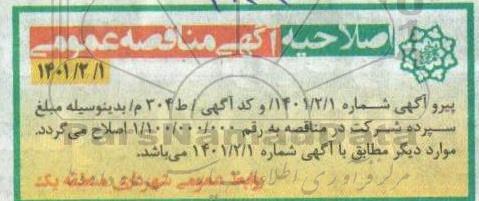 اصلاحیه آگهی مناقصه عمومی
۱۴۰۱/۲/۱
پیرو آگهی شماره ۱۴۰۱/۲/۱ و کد آگهی / ط ۳۰۴ م/ بدینوسیله مبلغ
سپرده شرکت در مناقصه به رقم ۱/۱۰۰/۰۰۰/۰۰۰ اصلاح می گردد.
موارد دیگر مطابق با آگهی شماره ۱۴۰۱/۲/۱ می‌باشد.
روابط عمومی شهرداری منطقه یک